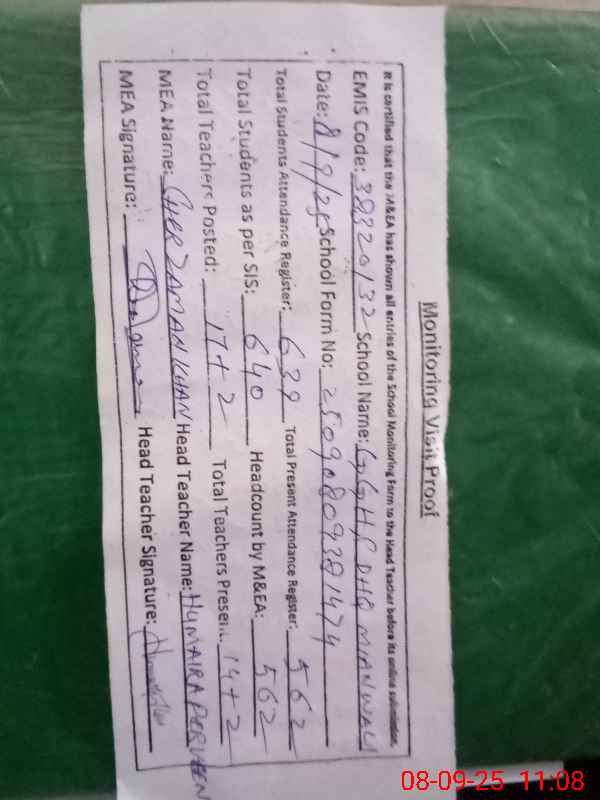 Monitoring Visit Proof
It is certified that the M&EA has shown all entries of the School Monitoring Form to the Head Teacher before its online submission.
EMIS Code: 38820132 School Name: G.G.H.S DHQ MIANWALI
Date: 8/9/25 School Form No: 2509080938 1474
Total Students Attendance Register: 639 Total Present Attendance Register: 562
Total Students as per SIS: 640 Headcount by M&EA: 562
Total Teachers Posted: 17+2 Total Teachers Present: 14+2
MEA Name: SHER ZAMAN KHAN Head Teacher Name: HUMAIRA PERVEEN
MEA Signature: Head Teacher Signature:
08-09-25 11:08